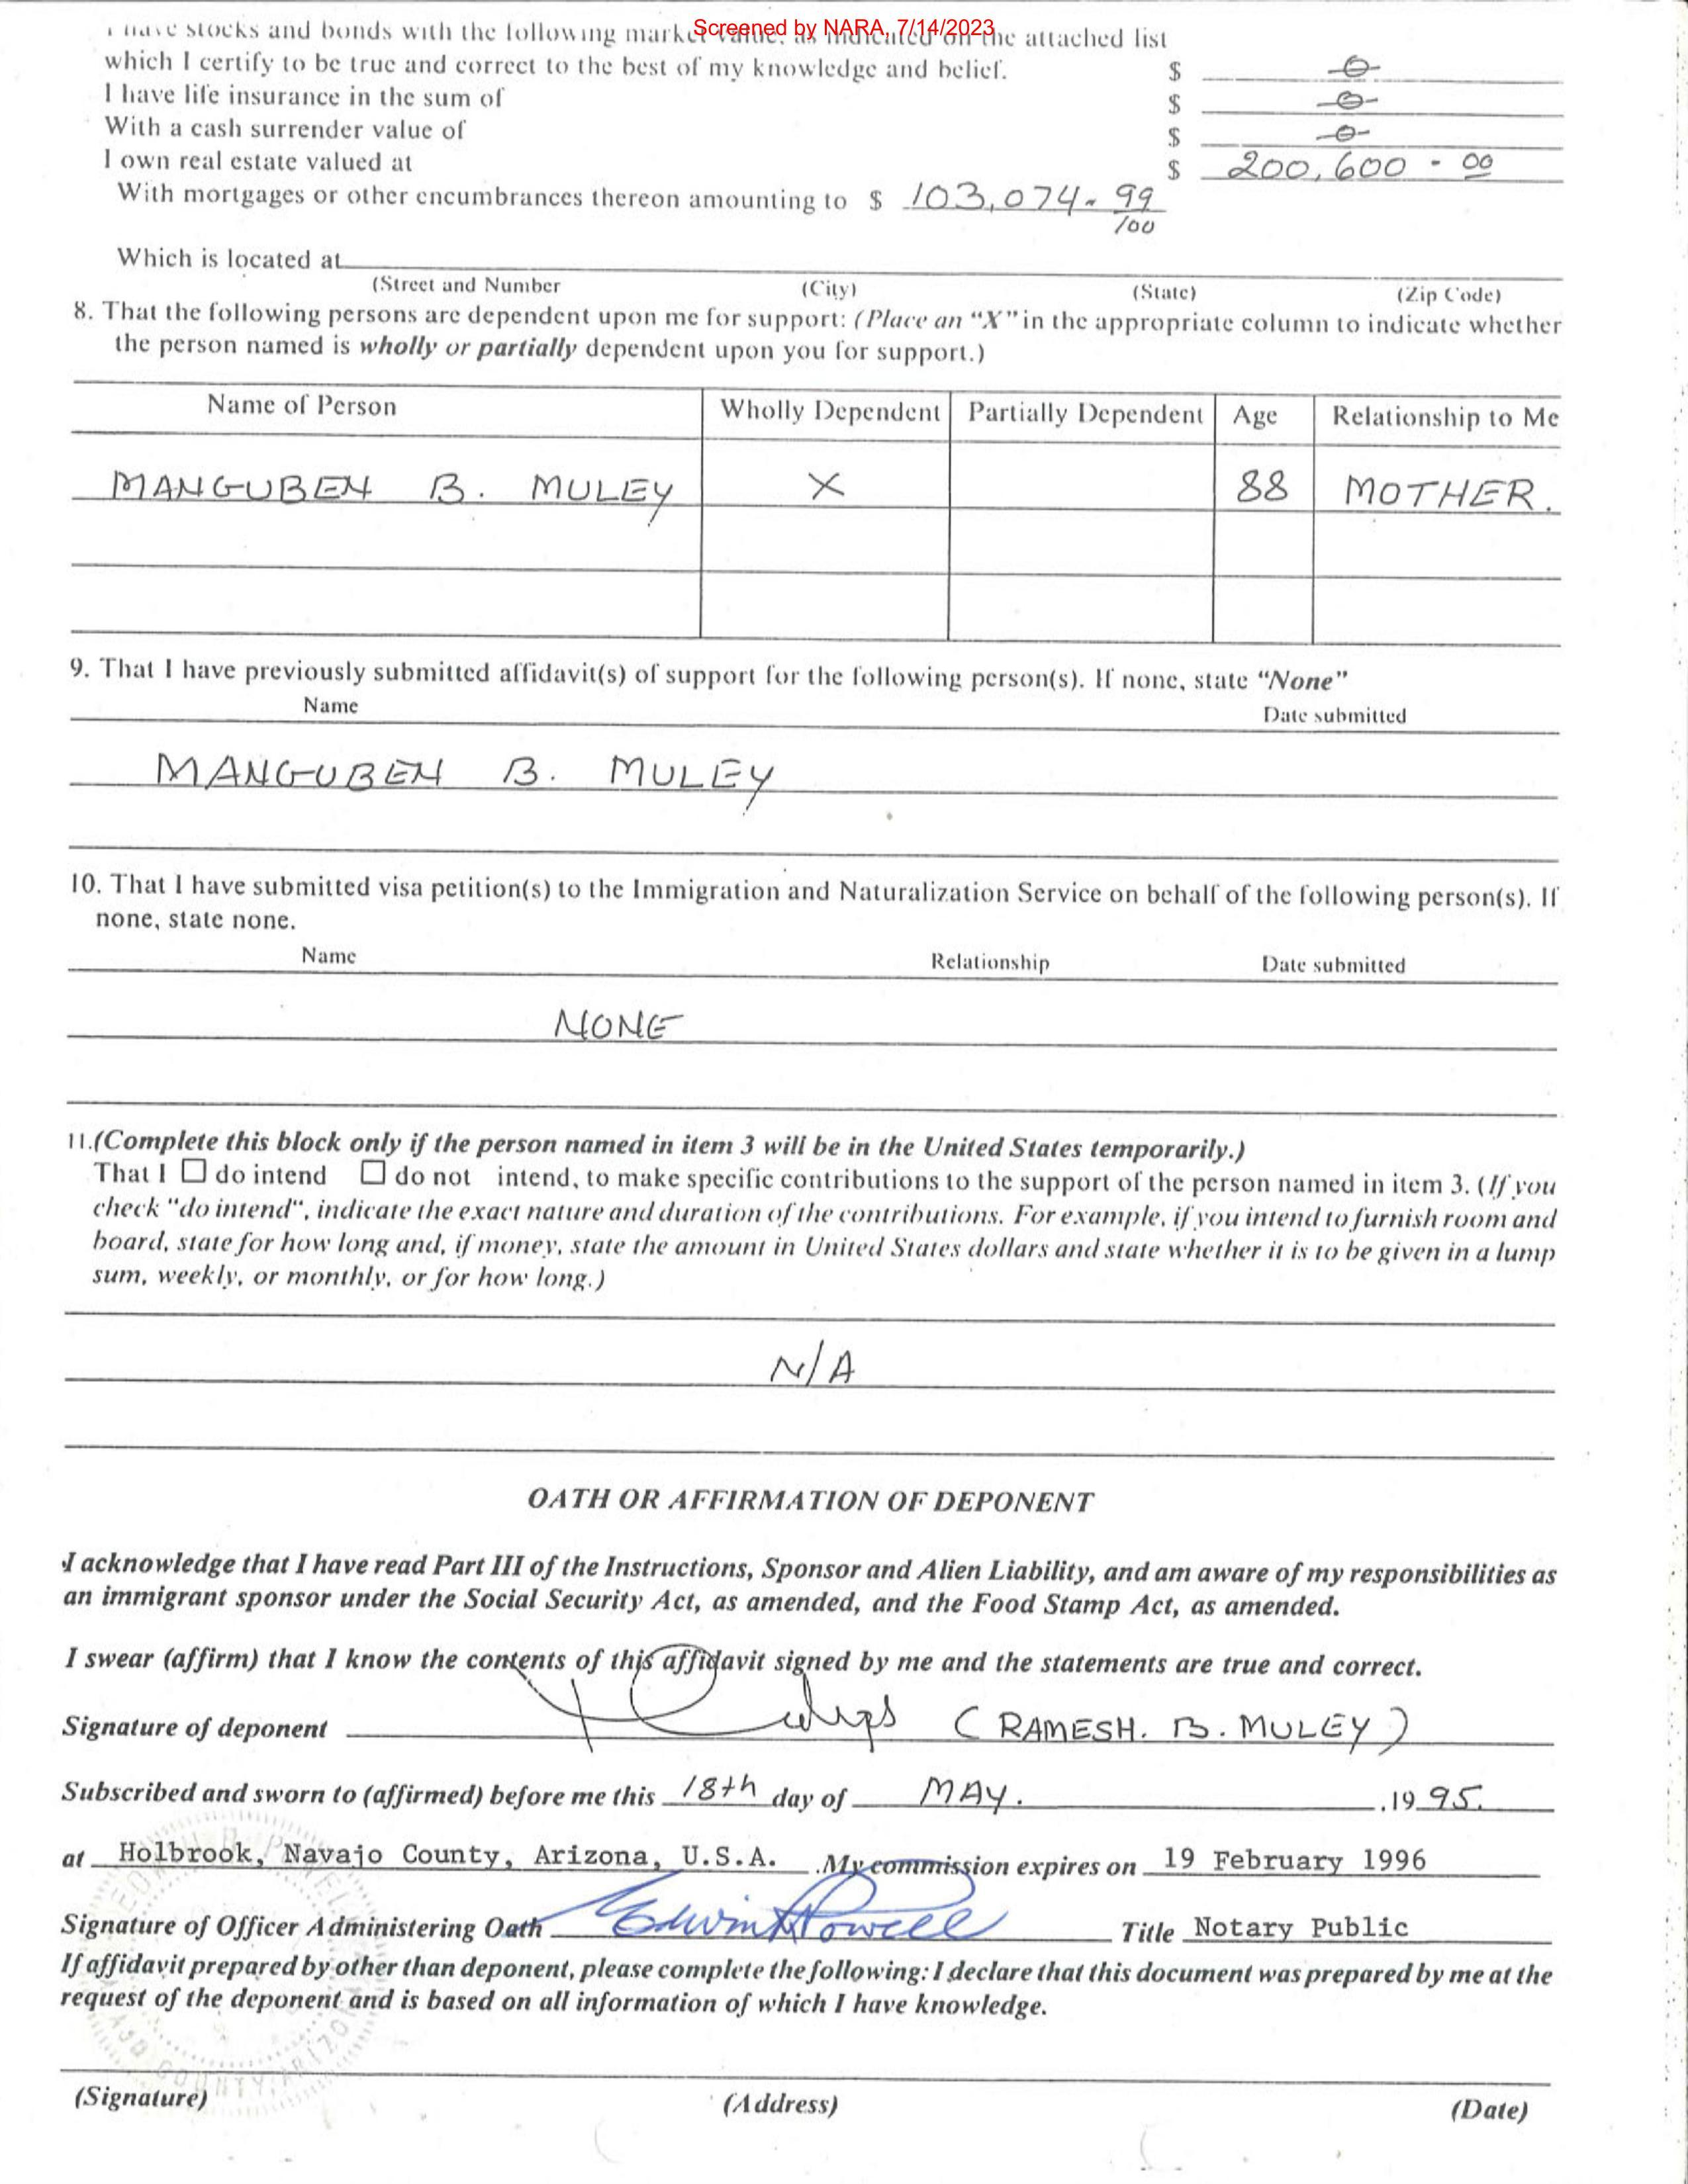 Screened by NARA, 7/14/2023
I have stocks and bonds with the following market value, as indicated on the attached list
which I certify to be true and correct to the best of my knowledge and belief. $ 0
I have life insurance in the sum of $ 0
With a cash surrender value of $ 0
I own real estate valued at $ 200,600 - 00
With mortgages or other encumbrances thereon amounting to $ 103,074- 99/100
Which is located at
(Street and Number (City) (State) (Zip Code)
8. That the following persons are dependent upon me for support: (Place an "X" in the appropriate column to indicate whether
the person named is wholly or partially dependent upon you for support.)
Name of Person Wholly Dependent Partially Dependent Age Relationship to Me
MANGUBEN B. MULEY X 88 MOTHER.
9. That I have previously submitted affidavit(s) of support for the following person(s). If none, state "None"
Name Date submitted
MANGUBEN B. MULEY
10. That I have submitted visa petition(s) to the Immigration and Naturalization Service on behalf of the following person(s). If
none, state none.
Name Relationship Date submitted
NONE
11.(Complete this block only if the person named in item 3 will be in the United States temporarily.)
That I ☐ do intend ☐ do not intend, to make specific contributions to the support of the person named in item 3. (If you
check "do intend", indicate the exact nature and duration of the contributions. For example, if you intend to furnish room and
board, state for how long and, if money, state the amount in United States dollars and state whether it is to be given in a lump
sum, weekly, or monthly, or for how long.)
N/A
OATH OR AFFIRMATION OF DEPONENT
I acknowledge that I have read Part III of the Instructions, Sponsor and Alien Liability, and am aware of my responsibilities as
an immigrant sponsor under the Social Security Act, as amended, and the Food Stamp Act, as amended.
I swear (affirm) that I know the contents of this affidavit signed by me and the statements are true and correct.
Signature of deponent (RAMESH. B. MULEY)
Subscribed and sworn to (affirmed) before me this 18th day of MAY. ,19 95.
at Holbrook, Navajo County, Arizona, U.S.A. .My commission expires on 19 February 1996
Signature of Officer Administering Oath Edwin R Powell Title Notary Public
If affidavit prepared by other than deponent, please complete the following: I declare that this document was prepared by me at the
request of the deponent and is based on all information of which I have knowledge.
(Signature) (Address) (Date)